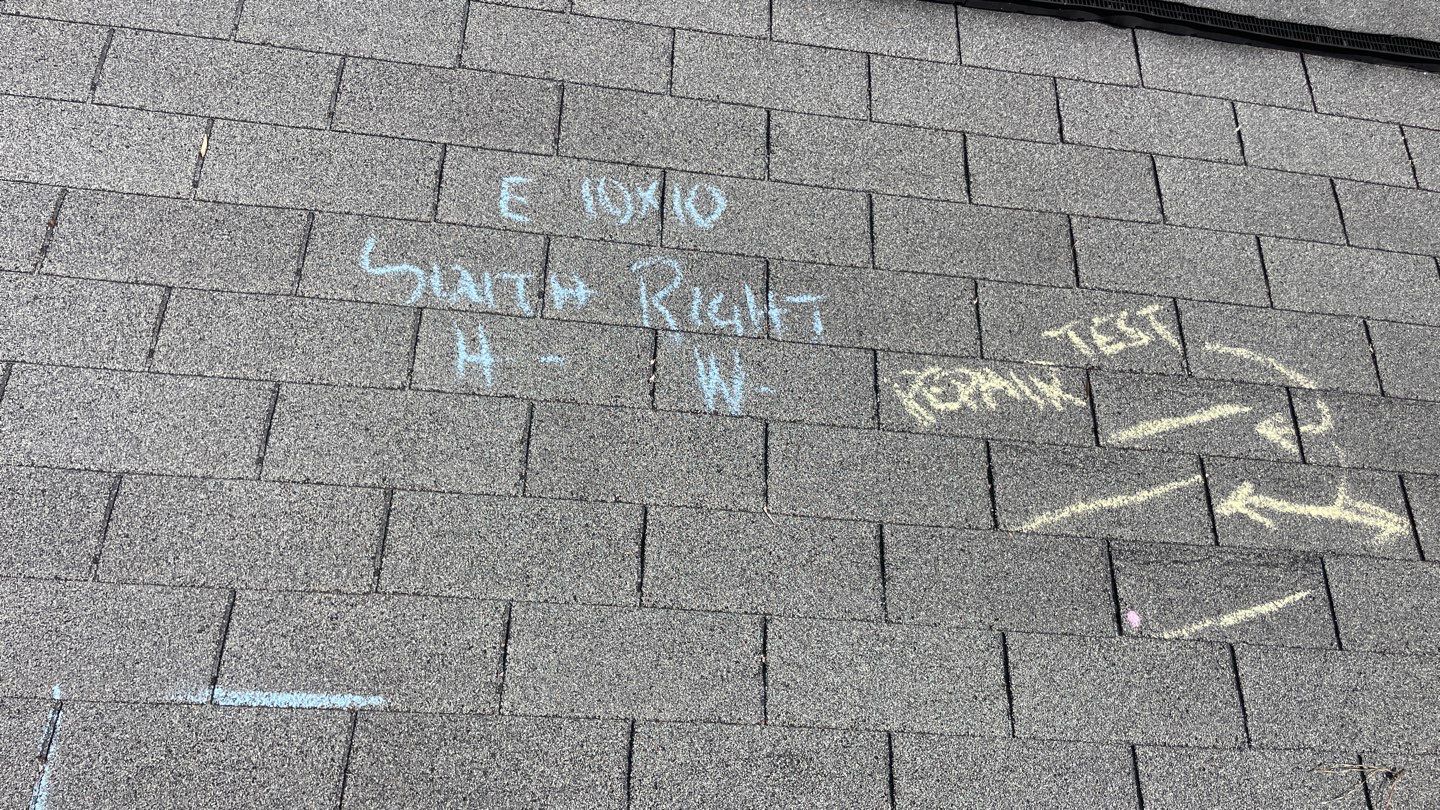 E 10X10
South Right
H - W -
TEST
REPAIR